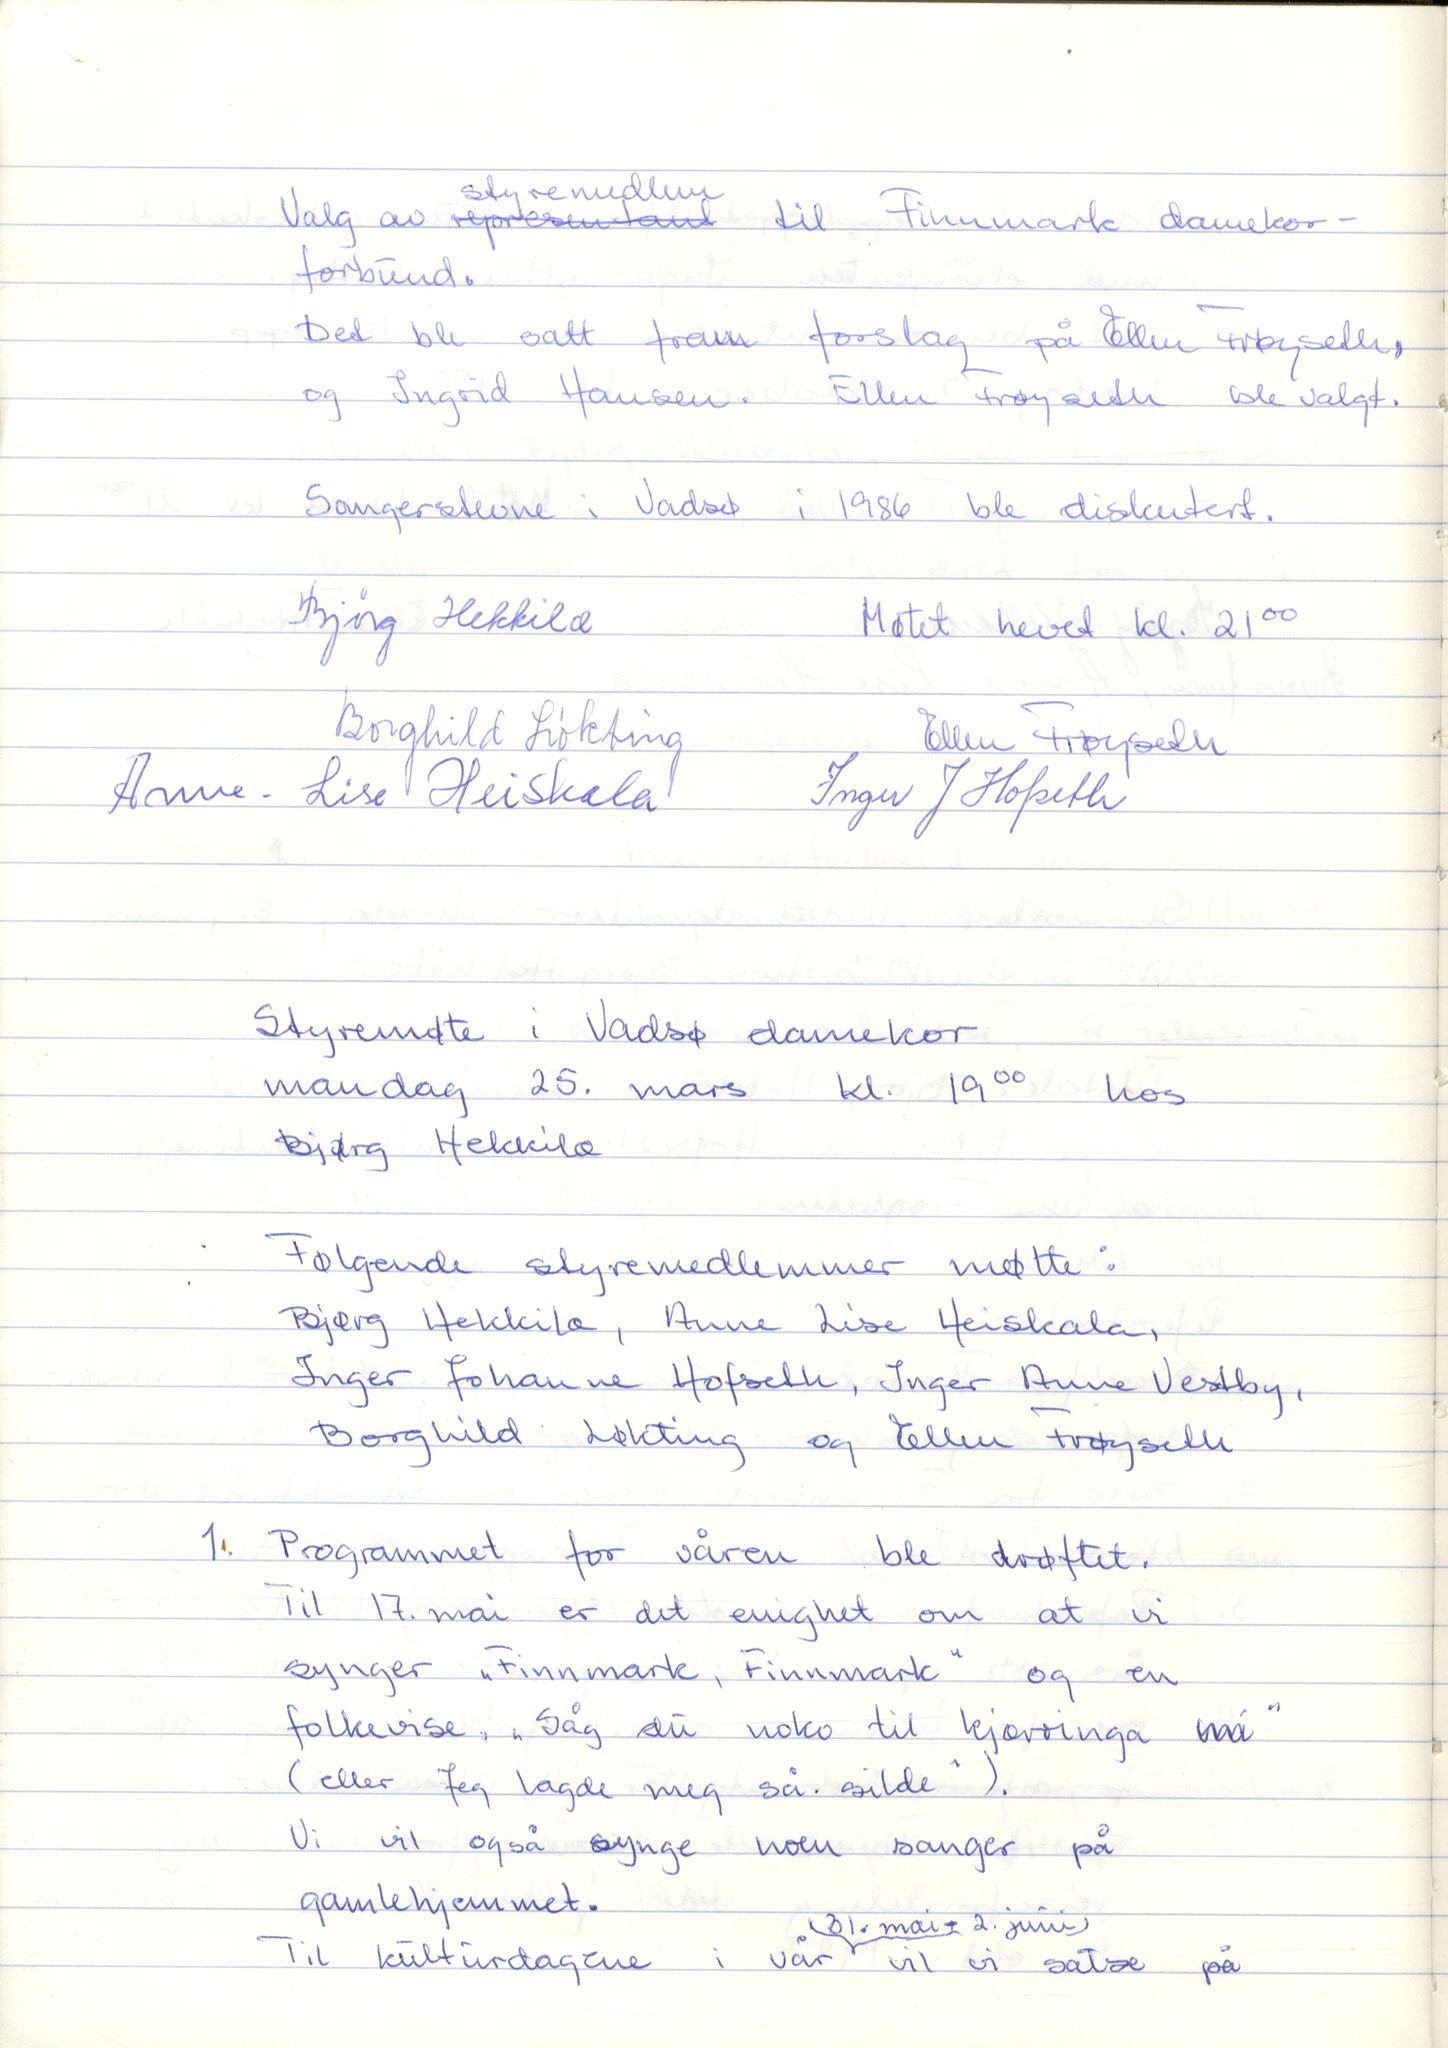 styremedlem
Valg av representant til Finnmark damekor-
forbund.
Det ble satt fram forslag på Ellen Frøyseth,
og Ingrid Hansen. Ellen Frøyseth ble valgt.
Sangerstevne i Vadsø i 1986 ble diskutert.
Bjørg Hekkilæ Møtet hevet kl. 21⁰⁰
Borghild Løkting Ellen Frøyseth
Anne-Lise Heiskala Inger J Hofseth
Styremøte i Vadsø damekor
mandag 25. mars kl. 19⁰⁰ hos
Bjørg Hekkilæ
Følgende styremedlemmer møtte:
Bjørg Hekkilæ, Anne Lise Heiskala,
Inger Johanne Hofseth, Inger Anne Vestby,
Borghild Løkting og Ellen Frøyseth
1. Programmet for våren ble drøftet.
Til 17. mai er det enighet om at vi
synger „Finnmark, Finnmark" og en
folkevise, „Såg du noko til kjærringa mi"
(eller Jeg lagde meg så silde").
Vi vil også synge noen sanger på
gamlehjemmet.
(31. mai - 2. juni)
Til kulturdagene i vår vil vi satse på